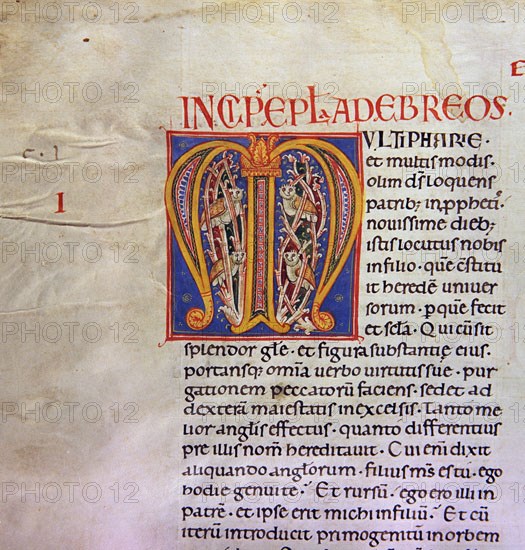 E
INCIP EPLA AD EBREOS.
c. 1
I
M VLTIPHARIE.
et multis modis.
olim ds loquens
patrib; in pphetis
novissime dieb;
istis locutus nobis
in filio. que cstitu
it herede univer
sorum. p que fecit
et scla. Qui cu sit
splendor gle. et figura substantie eius.
portansq; omia verbo virtutis sue. pur
gationem peccatoru faciens. sedet ad
dextera maiestatis in excelsis. Tanto me
lior anglis effectus. quanto differentius
pre illis nom hereditavit. Cui eni dixit
aliquando anglorum. filius ms es tu. ego
hodie genui te. Et rursu. ego ero illi in
patre. et ipse erit michi in filiu. Et cu
iteru introducit primogenitu in orbem
PHOTO 12